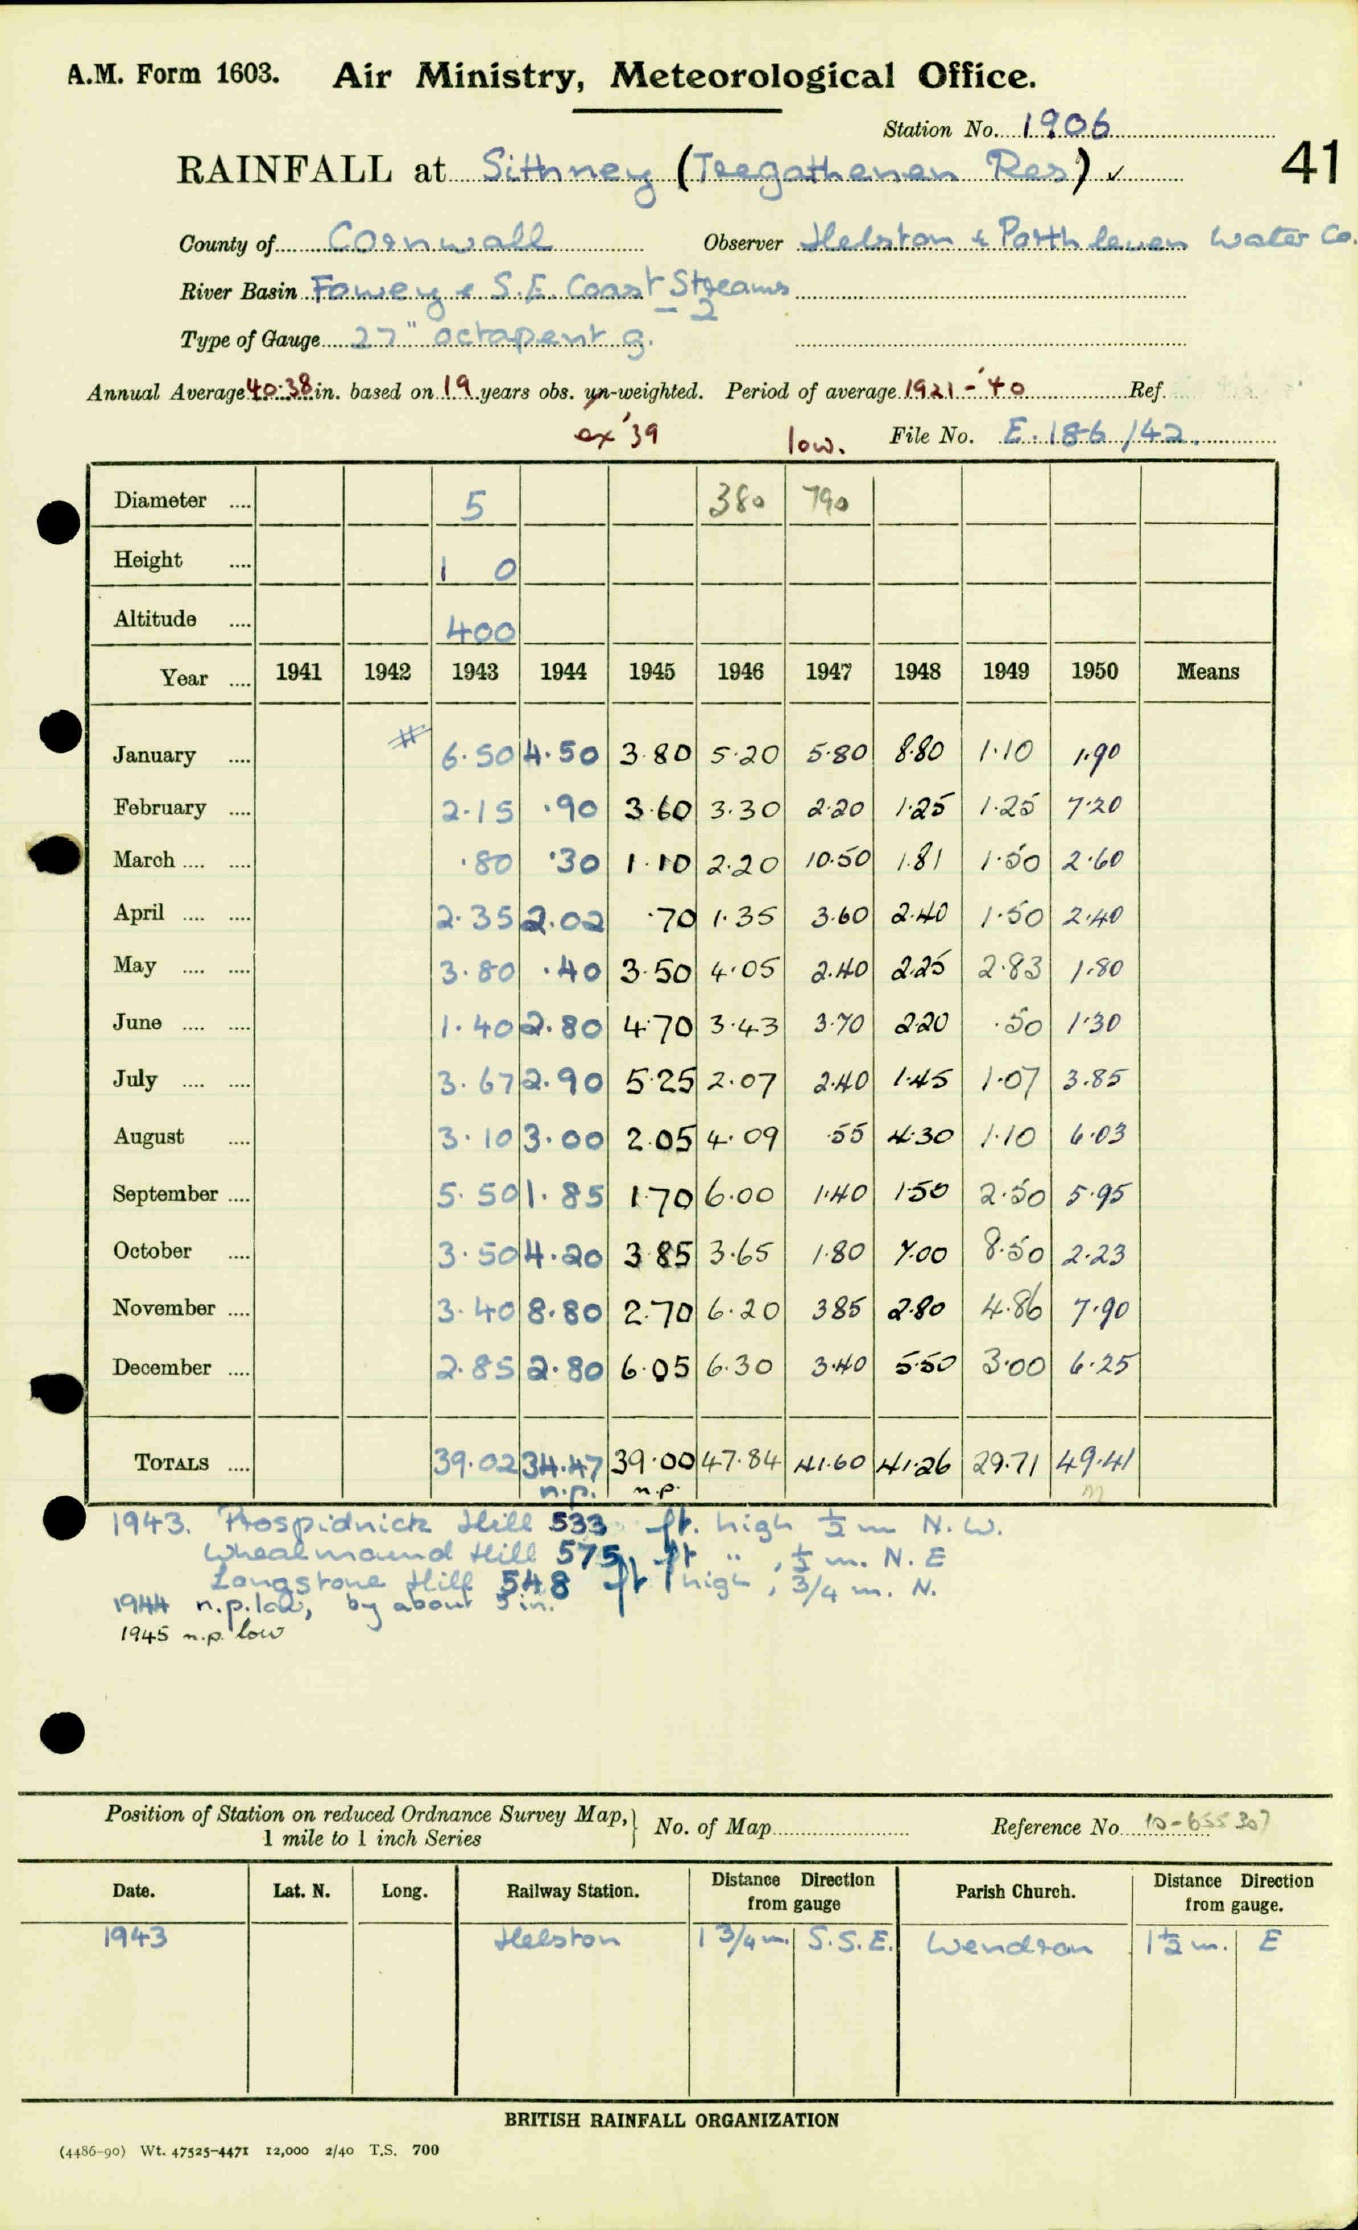 A.M. Form 1603. Air Ministry, Meteorological Office.
Station No. 1906
41
RAINFALL at Sithney (Tregathenan Res) ✓
County of Cornwall Observer Helston & Porthleven Water Co.
River Basin Fowey & S.E. Coast Streams
Type of Gauge 27" octapent g. - 2
Annual Average 40.38 in. based on 19 years obs. un-weighted. Period of average 1921-'40 Ref.
ex '39 low. File No. E.186/42.
Diameter .... 5 380 790
Height .... 1 0
Altitude .... 400
Year .... 1941 1942 1943 1944 1945 1946 1947 1948 1949 1950 Means
January .... # 6.50 4.50 3.80 5.20 5.80 8.80 1.10 1.90
February .... 2.15 .90 3.60 3.30 2.20 1.25 1.25 7.20
March .... .... .80 .30 1.10 2.20 10.50 1.81 1.50 2.60
April .... .... 2.35 2.02 .70 1.35 3.60 2.40 1.50 2.40
May .... .... 3.80 .40 3.50 4.05 2.40 2.25 2.83 1.80
June .... .... 1.40 2.80 4.70 3.43 3.70 2.20 .50 1.30
July .... .... 3.67 2.90 5.25 2.07 2.40 1.45 1.07 3.85
August .... 3.10 3.00 2.05 4.09 .55 4.30 1.10 6.03
September .... 5.50 1.85 1.70 6.00 1.40 1.50 2.50 5.95
October .... 3.50 4.20 3.85 3.65 1.80 7.00 8.50 2.23
November .... 3.40 8.80 2.70 6.20 3.85 2.80 4.86 7.90
December .... 2.85 2.80 6.05 6.30 3.40 5.50 3.00 6.25
TOTALS .... 39.02 34.47 39.00 47.84 41.60 41.26 29.71 49.41
n.p. n.p. m
1943. Prospidnick Hill 533 ft. high ½ m N.W.
Wheal mound Hill 575 ft " , ½ m. N.E
Longstone Hill 548 ft high , 3/4 m. N.
1944 n.p. low, by about 5 in.
1945 n.p. low
Position of Station on reduced Ordnance Survey Map, 1 mile to 1 inch Series } No. of Map Reference No. 10-655307
Date. Lat. N. Long. Railway Station. Distance Direction from gauge Parish Church. Distance Direction from gauge.
1943 Helston 1 3/4 m. S.S.E. Wendron 1½ m. E
BRITISH RAINFALL ORGANIZATION
(4486-90) Wt. 47525-4471 12,000 2/40 T.S. 700